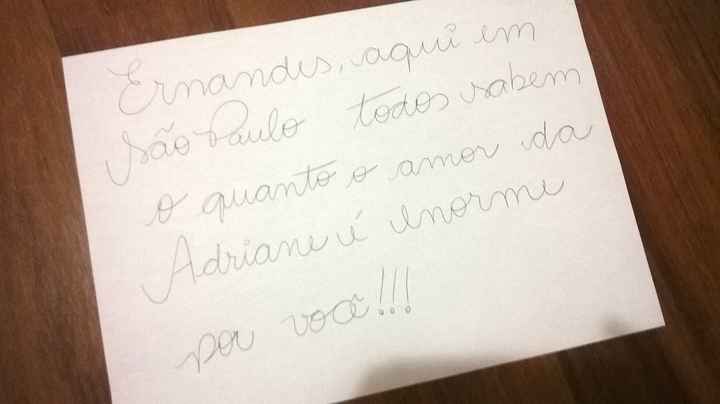 Ernandes, aqui em
São Paulo todos sabem
o quanto o amor da
Adriane é enorme
por você!!!